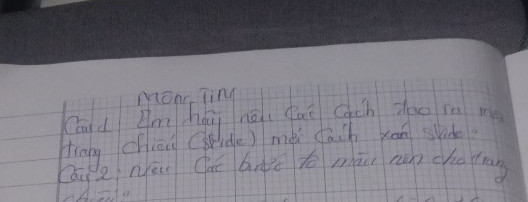 Môn: Tin
Câu 1 Em hãy nêu các cách tạo ra một
trang chiếu (Slide) mới cách xoá slide?
Câu 2: Nêu các bước tô màu nền cho trang
chiếu?